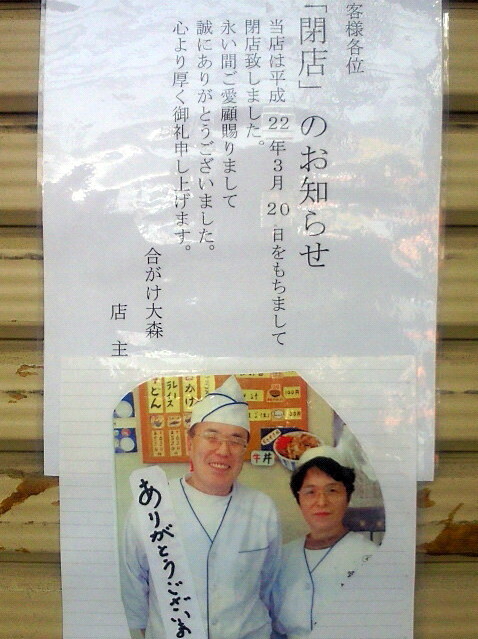 客様各位
「閉店」のお知らせ
当店は平成22年3月20日をもちまして
閉店致しました。
永い間ご愛顧賜りまして
誠にありがとうございました。
心より厚く御礼申し上げます。
合がけ大森
店主
牛丼
ありがとうござい